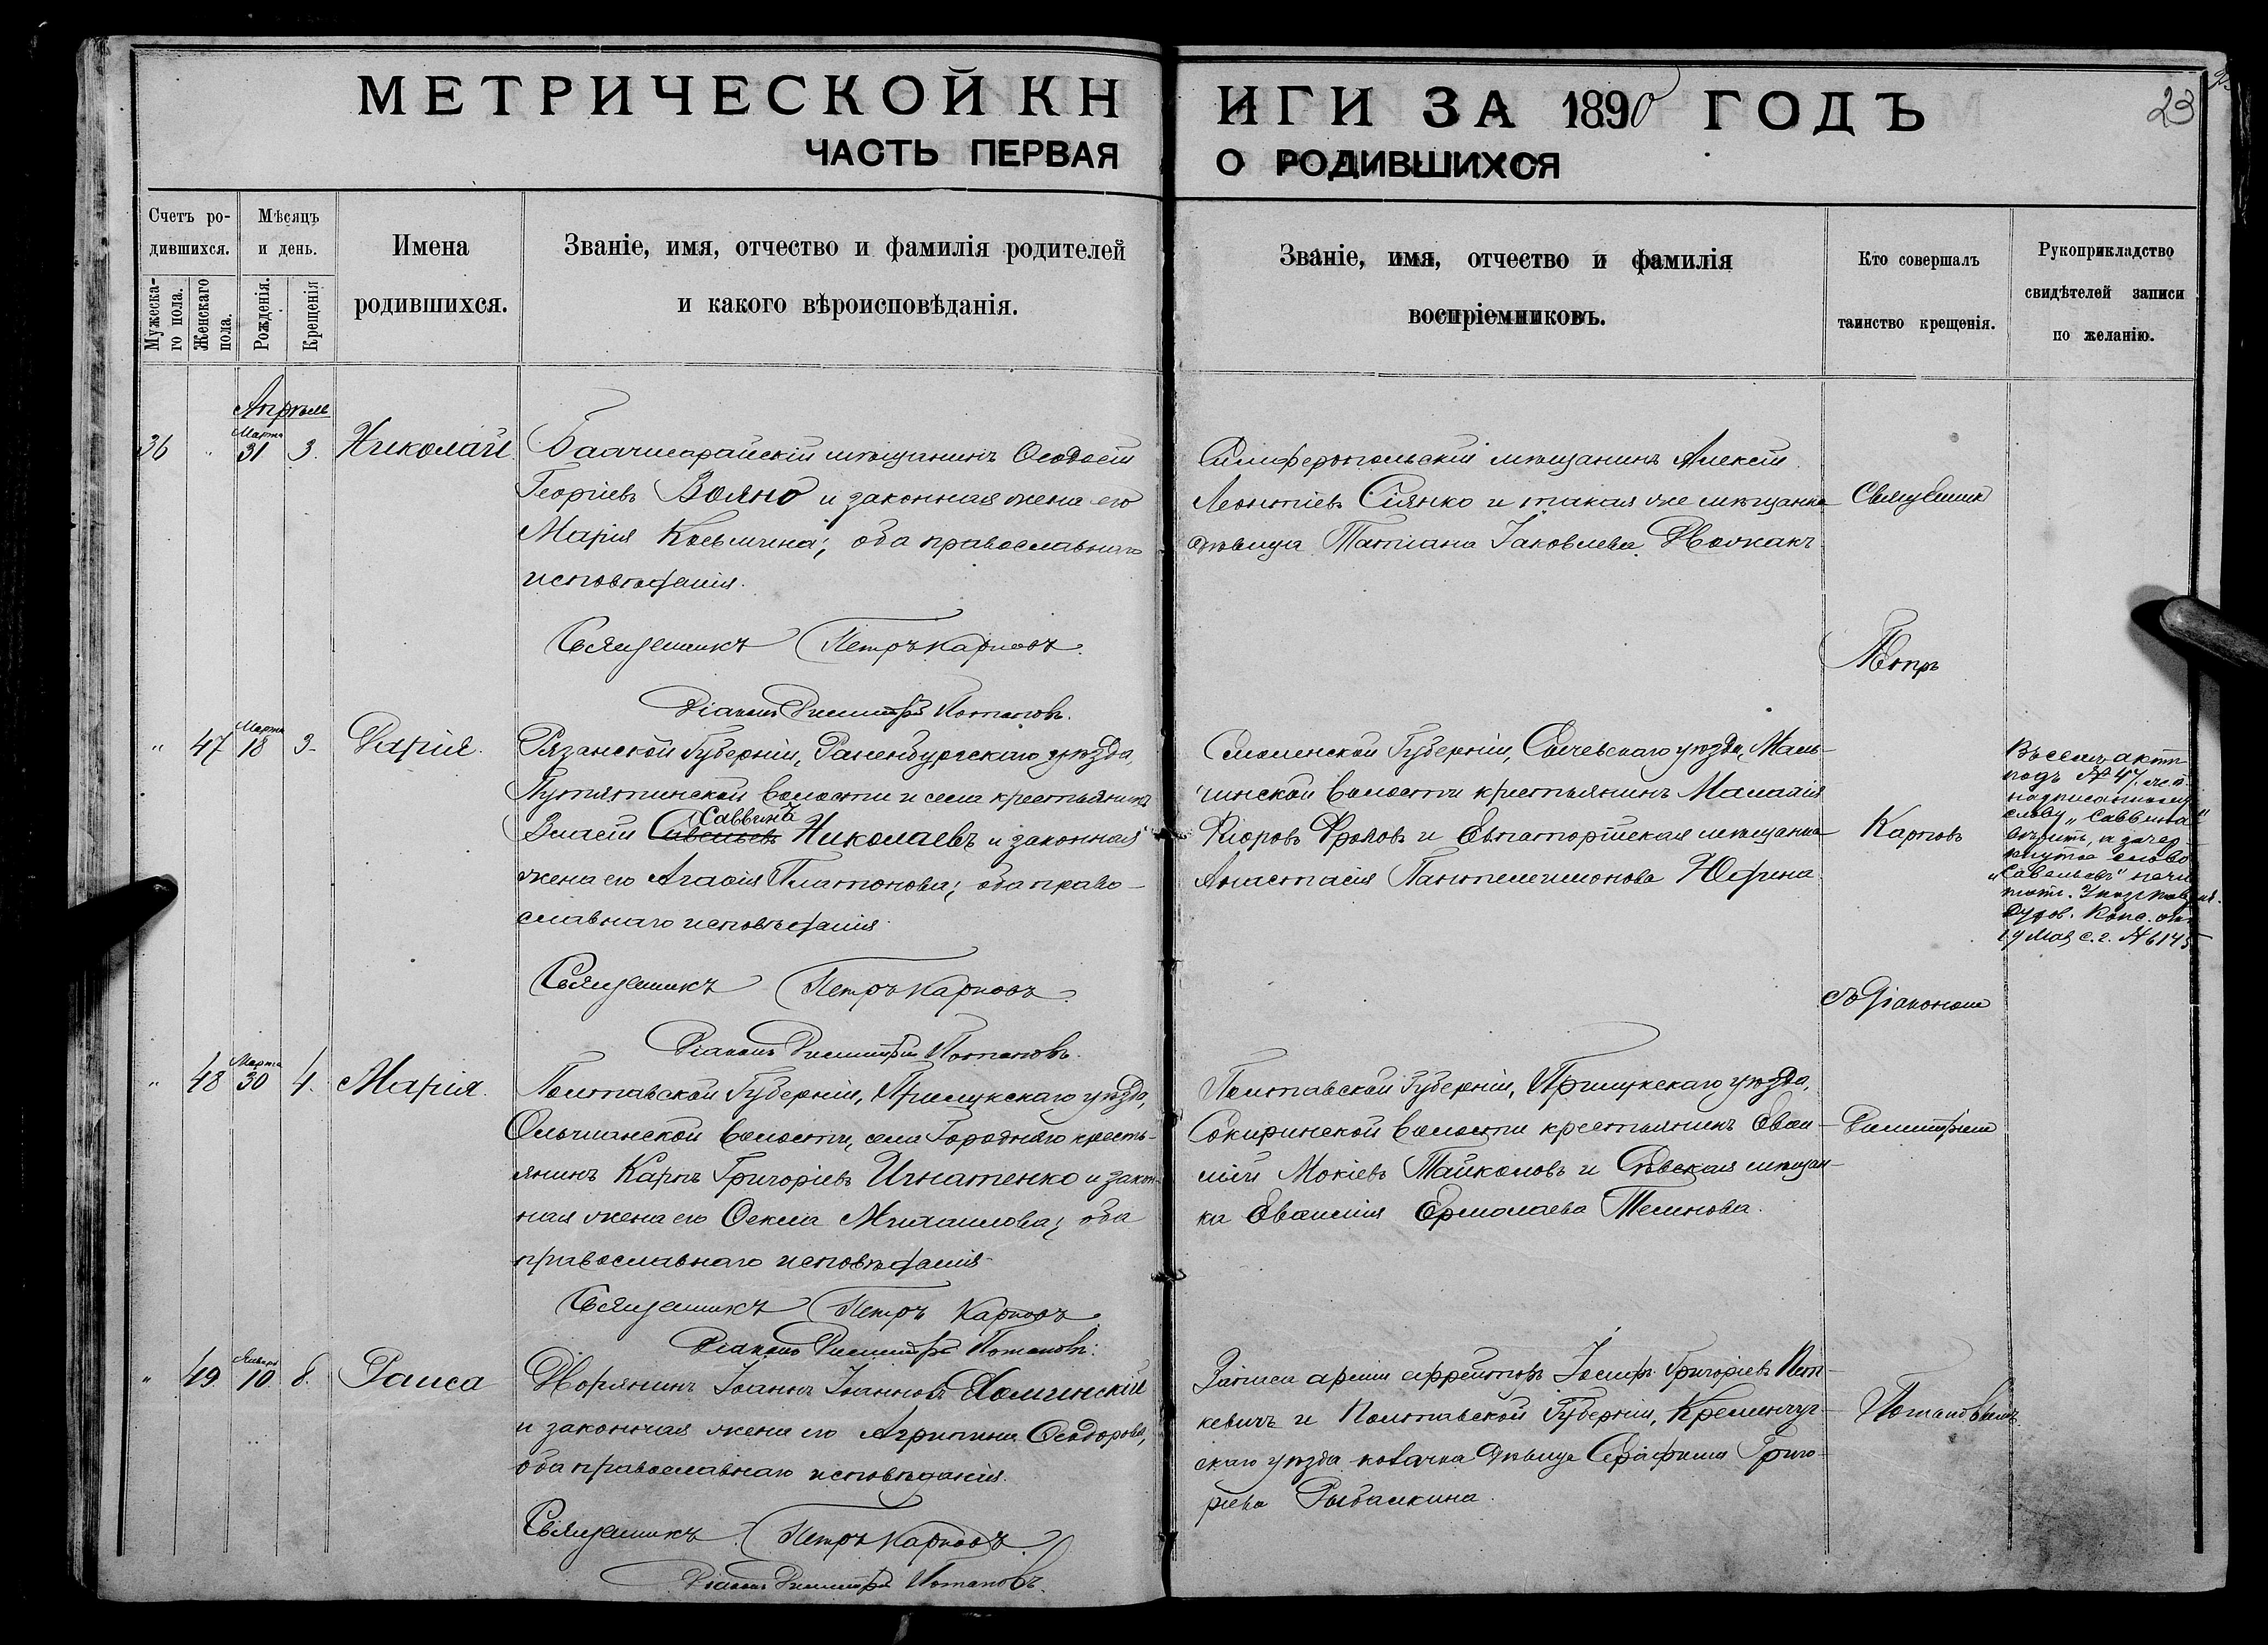 МЕТРИЧЕСКОЙ КН
ИГИ ЗА 1890 ГОДЪ
23
ЧАСТЬ ПЕРВАЯ
О РОДИВШИХСЯ
Счетъ ро-
дившихся.
Мужеска-
го пола.
Женскаго
пола.
Мѣсяцъ
и день.
Рожденія.
Крещенія
Имена
родившихся.
Званіе, имя, отчество и фамилія родителей
и какого вѣроисповѣданія.
Званіе, имя, отчество и фамилія
воспріемниковъ.
Кто совершалъ
таинство крещенія.
Рукоприкладство
свидѣтелей записи
по желанію.
Апрѣль
36 " Марта 31 3. Николай
Бахчисарайскій мѣщанинъ Ѳеодосій
Георгіевъ Вояно и законная жена его
Марія Косьмина; оба православнаго
исповѣданія.
Священникъ Петръ Карповъ.
Діаконъ Димитрій Потаповъ.
Симферопольскій мѣщанинъ Алексій
Леонтіевъ Сіянко и такая же мѣщанка
дѣвица Татіана Іаковлева
Священник
Петръ
" 47 Марта 18 3. Дарія.
Рязанской Губерніи, Раненбургскаго уѣзда,
Путятинской волости и села крестьянинъ
Саввина
Власій Савельевъ Николаевъ и законная
жена его Агаѳія Платонова; оба право-
славнаго исповѣданія
Священникъ Петръ Карповъ.
Діаконъ Димитрій Потаповъ.
Смоленской Губерніи, Сычевскаго уѣзда, Маль-
чинской волости крестьянинъ Малахія
Фроловъ и Евпаторійская мѣщанка
Анастасія Пантелеимонова Юдина
Карповъ
Въ семъ актѣ
подъ № 47,
надписанному
слову "Саввина"
вѣрить, а зачер-
кнутое слово
"Савельевъ" не чи-
тать.
Духов. Конс. отъ
19 Мая с.г. № 6145
съ діакономъ
" 48 Марта 30 4. Марія.
Полтавской Губерніи, Прилукскаго уѣзда,
Ольшанской волости, села Городняго кресть-
янинъ Карпъ Григоріевъ Игнатенко и закон-
ная жена его Ѳекла Михаилова; оба
православнаго исповѣданія
Священникъ Петръ Карповъ.
Діаконъ Димитрій Потаповъ.
Полтавской Губерніи, Прилукскаго уѣзда,
Сокиринской волости крестьянинъ Евѳи-
мій Мокіевъ Тайконовъ и Сѣвская мѣщан-
ка Евѳимія Ермолаева Телинова.
Димитріемъ
" 49. Января 10. 8. Раиса
Дворянинъ Іоаннъ Іоанновъ Хомчинскій
и законная жена его Агрипина Ѳеодорова,
оба православнаго исповѣданія.
Священникъ Петръ Карповъ.
Діаконъ Димитрій Потаповъ.
Запаса арміи ефрейторъ Іосифъ Григоріевъ Пет-
кевичъ и Полтавской Губерніи, Кременчуг-
скаго уѣзда козачка дѣвица Серафима Григо-
ріева Рыбалкина.
Потаповымъ.